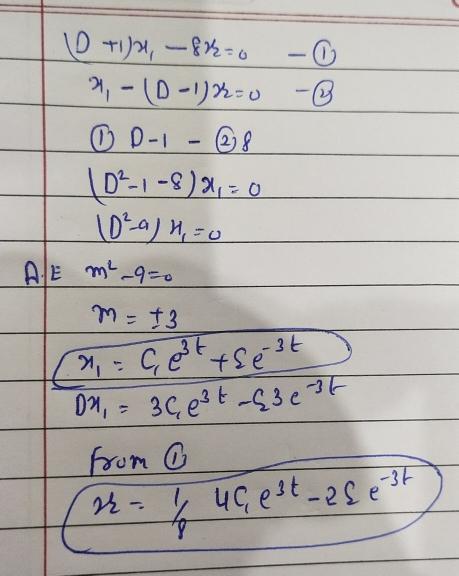 (D +1)x₁ - 8x₂ = 0 - ①
x₁ - (D - 1)x₂ = 0 - ②
① D-1 - ② 8
(D² - 1 - 8) x₁ = 0
(D² - 9) x₁ = 0
A.E m² - 9 = 0
m = ±3
x₁ = C₁e³ᵗ + C₂e⁻³ᵗ
Dx₁ = 3C₁e³ᵗ - C₂3e⁻³ᵗ
from ①
x₂ = 1/8 4C₁e³ᵗ - 2C₂e⁻³ᵗ